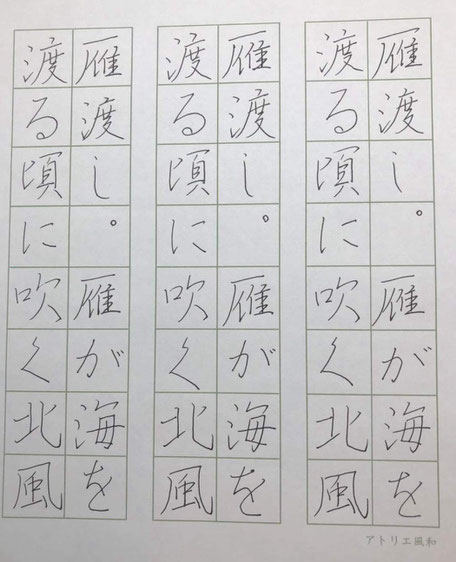 雁渡し。雁が海を
渡る頃に吹く北風
雁渡し。雁が海を
渡る頃に吹く北風
雁渡し。雁が海を
渡る頃に吹く北風
アトリエ風和